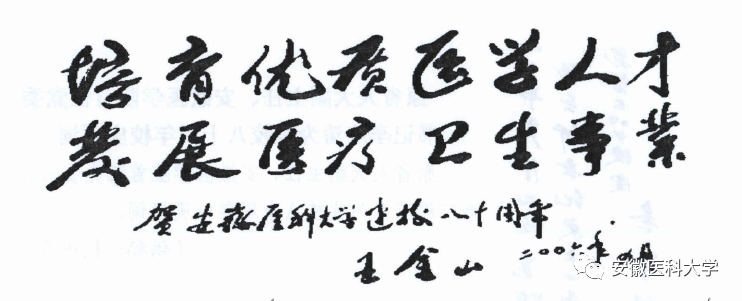 培育优质医学人才
发展医疗卫生事业
贺安徽医科大学建校八十周年
王金山 二〇〇六年四月
安徽医科大学